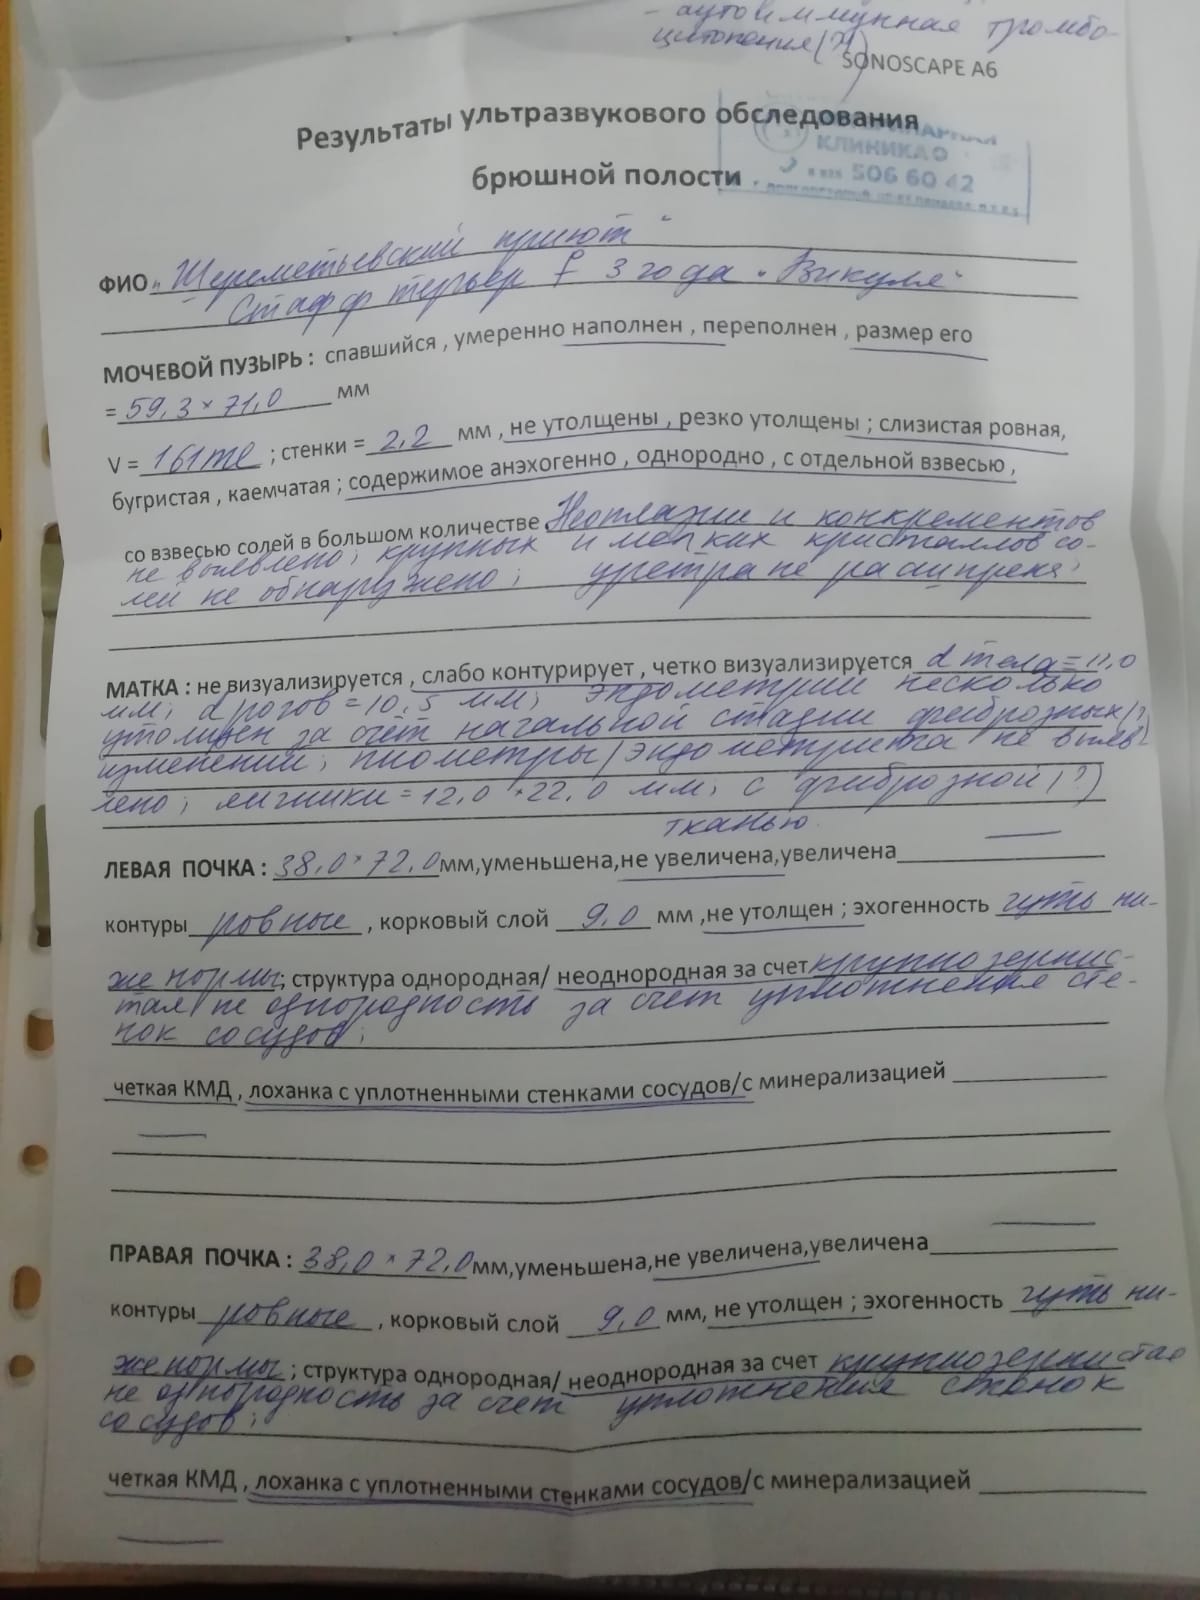 - аутоиммунная тромбо-
цитопения (?)
SONOSCAPE A6
Результаты ультразвукового обследования
КЛИНИКА
брюшной полости
506 60 42
ФИО „Шереметьевский приют"
Стафф терьер f 3 года „Викуля"
МОЧЕВОЙ ПУЗЫРЬ : спавшийся , умеренно наполнен , переполнен , размер его
= 59,3 × 71,0 мм
V = 161 ml ; стенки = 2,2 мм , не утолщены , резко утолщены ; слизистая ровная,
бугристая , каемчатая ; содержимое анэхогенно , однородно , с отдельной взвесью ,
со взвесью солей в большом количестве Неоплазии и конкрементов
не выявлено; крупных и мелких кристаллов со-
лей не обнаружено; уретра не расширена;
МАТКА : не визуализируется , слабо контурирует , четко визуализируется d тела = 11,0
мм; d рогов = 10,5 мм; эндометрий несколько
утолщен за счёт начальной стадии фиброзных (?)
изменений; пиометры/эндометрита не выяв-
лено; яичники = 12,0 × 22,0 мм; с фиброзной (?)
тканью.
ЛЕВАЯ ПОЧКА : 38,0 × 72,0 мм,уменьшена,не увеличена,увеличена
контуры ровные , корковый слой 9,0 мм ,не утолщен ; эхогенность чуть ни-
же нормы; структура однородная/ неоднородная за счет крупнозернис-
тая неоднородность за счет уплотнения сте-
нок сосудов;
четкая КМД , лоханка с уплотненными стенками сосудов/с минерализацией
ПРАВАЯ ПОЧКА : 38,0 × 72,0 мм,уменьшена,не увеличена,увеличена
контуры ровные , корковый слой 9,0 мм, не утолщен ; эхогенность чуть ни-
же нормы ; структура однородная/ неоднородная за счет крупнозернистая
неоднородность за счет уплотнения стенок
сосудов;
четкая КМД , лоханка с уплотненными стенками сосудов/с минерализацией